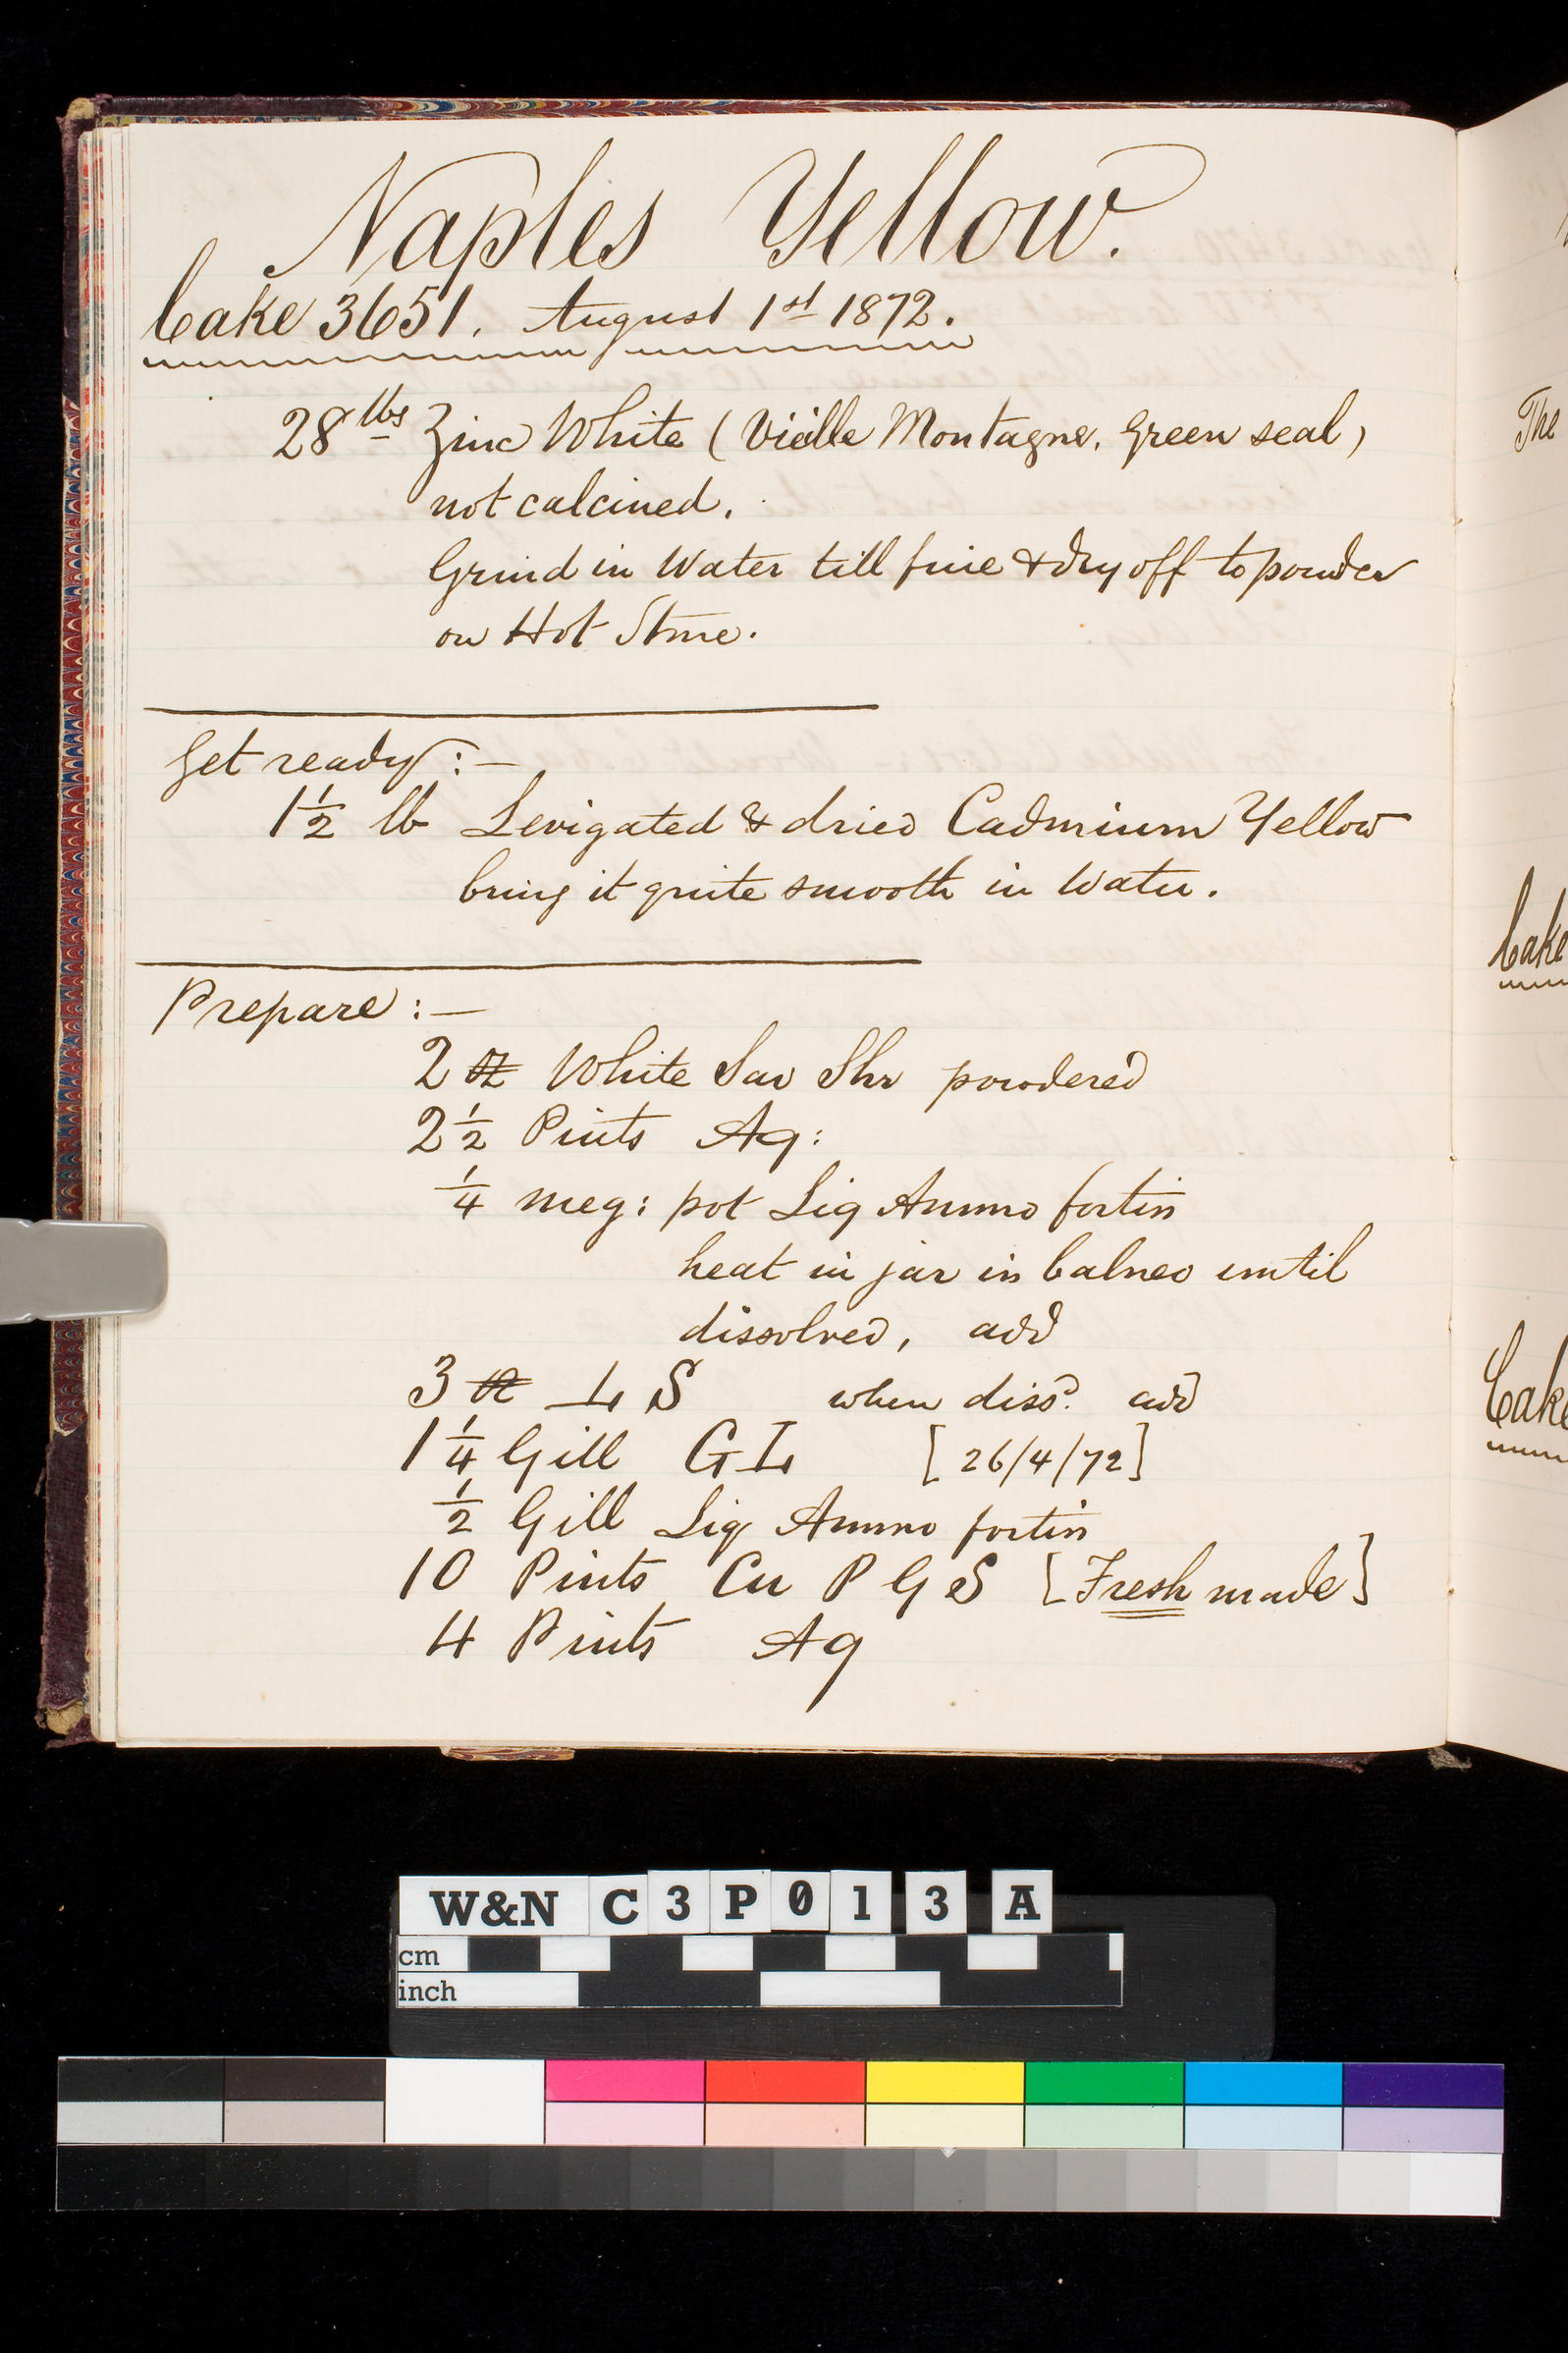 Naples Yellow.
Cake 3651. August 1st 1872.
28 lbs Zinc White (Viëlle Montagne. Green seal)
not calcined.
Grind in Water till fine & dry off to powder
on Hot Stone.
The
Get ready :—
1 1/2 lb Levigated & dried Cadmium Yellow
bring it quite smooth in Water.
Cake
Prepare :—
2 oz White Sav Shr powdered
2 1/2 Pints Aq:
1/4 meg: pot Liq Ammo fortis
heat in jar in balneo until
dissolved, add
3 oz L S when dissd. add
Cake
1 1/4 Gill G L [26/4/72]
1/2 Gill Liq Ammo fortis
10 Pints Cu P G S [Fresh made]
4 Pints Aq
W&N C3P013A
cm
inch